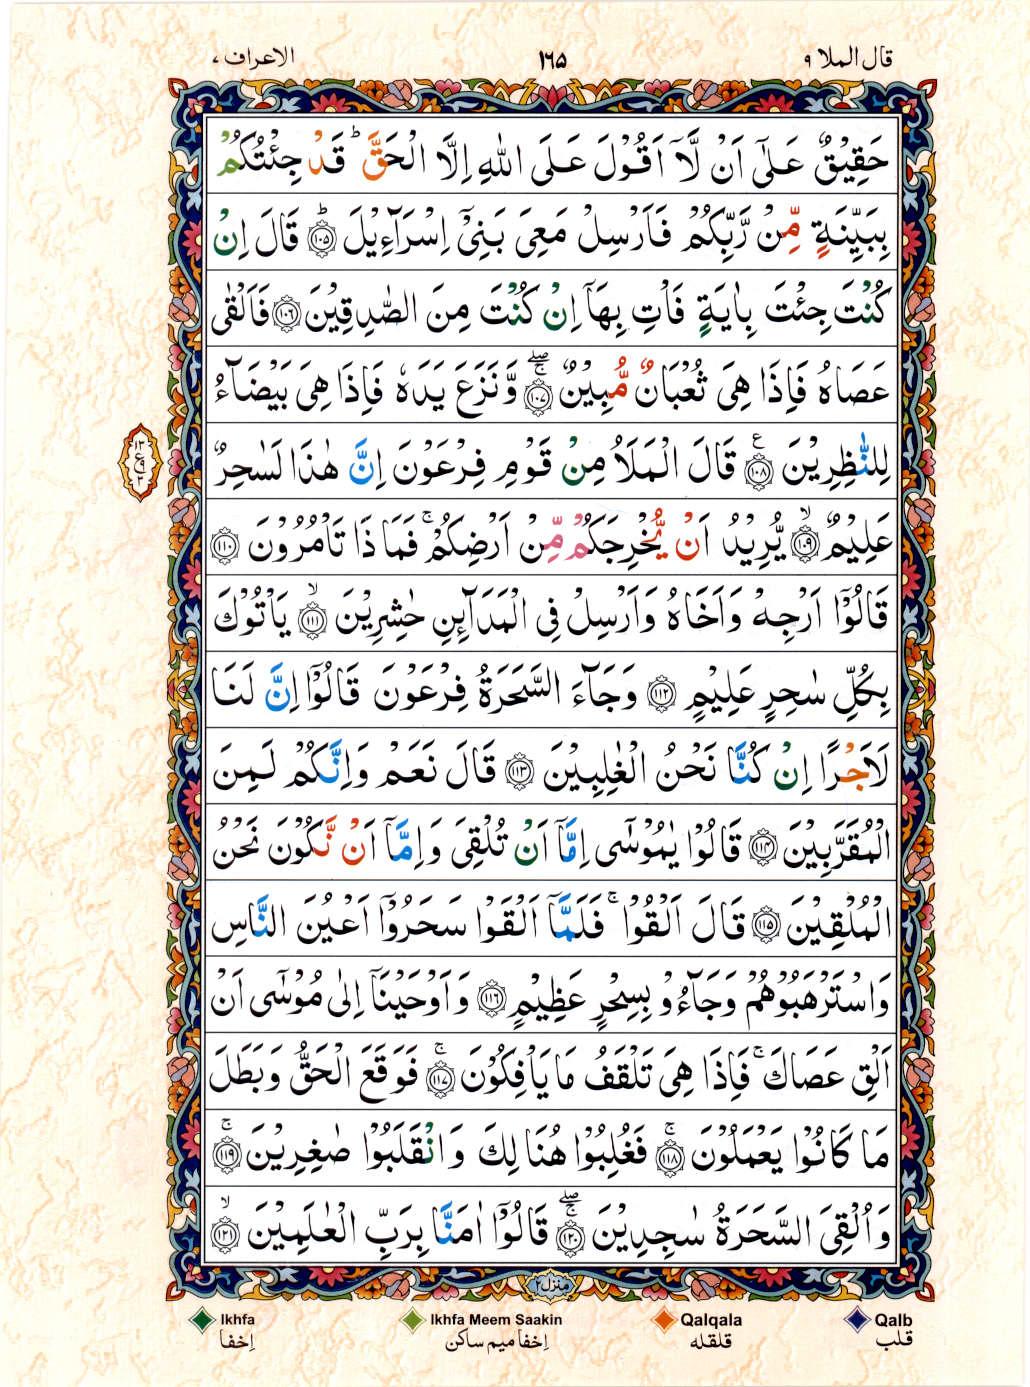 قال الملا ۹
۱۶۵
الاعراف ۷
حَقِيْقٌ عَلٰۤى اَنْ لَّاۤ اَقُوْلَ عَلَى اللّٰهِ اِلَّا الْحَقَّ ؕ قَدْ جِئْتُكُمْ
بِبَيِّنَةٍ مِّنْ رَّبِّكُمْ فَاَرْسِلْ مَعِىَ بَنِىْۤ اِسْرَآءِيْلَ ؕ‏ ﴿۱۰۵﴾ قَالَ اِنْ
كُنْتَ جِئْتَ بِاٰيَةٍ فَاْتِ بِهَاۤ اِنْ كُنْتَ مِنَ الصّٰدِقِيْنَ ﴿۱۰۶﴾ فَاَلْقٰى
عَصَاهُ فَاِذَا هِىَ ثُعْبَانٌ مُّبِيْنٌ ۖۚ ﴿۱۰۷﴾ وَّنَزَعَ يَدَهٗ فَاِذَا هِىَ بَيْضَآءُ
لِلنّٰظِرِيْنَ ﴿۱۰۸﴾ ع قَالَ الْمَلَاُ مِنْ قَوْمِ فِرْعَوْنَ اِنَّ هٰذَا لَسٰحِرٌ
عَلِيْمٌ ۙ ﴿۱۰۹﴾ يُّرِيْدُ اَنْ يُّخْرِجَكُمْ مِّنْ اَرْضِكُمْ ۚ فَمَاذَا تَاْمُرُوْنَ ﴿۱۱۰﴾
قَالُوْۤا اَرْجِهْ وَاَخَاهُ وَاَرْسِلْ فِى الْمَدَآئِنِ حٰشِرِيْنَ ۙ ﴿۱۱۱﴾ يَاْتُوْكَ
بِكُلِّ سٰحِرٍ عَلِيْمٍ ﴿۱۱۲﴾ وَجَآءَ السَّحَرَةُ فِرْعَوْنَ قَالُوْۤا اِنَّ لَنَا
لَاَجْرًا اِنْ كُنَّا نَحْنُ الْغٰلِبِيْنَ ﴿۱۱۳﴾ قَالَ نَعَمْ وَاِنَّكُمْ لَمِنَ
الْمُقَرَّبِيْنَ ﴿۱۱۴﴾ قَالُوْا يٰمُوْسٰۤى اِمَّاۤ اَنْ تُلْقِىَ وَاِمَّاۤ اَنْ نَّكُوْنَ نَحْنُ
الْمُلْقِيْنَ ﴿۱۱۵﴾ قَالَ اَلْقُوْا ۚ فَلَمَّاۤ اَلْقَوْا سَحَرُوْۤا اَعْيُنَ النَّاسِ
وَاسْتَرْهَبُوْهُمْ وَجَآءُوْ بِسِحْرٍ عَظِيْمٍ ﴿۱۱۶﴾ وَاَوْحَيْنَاۤ اِلٰى مُوْسٰۤى اَنْ
اَلْقِ عَصَاكَ ۚ فَاِذَا هِىَ تَلْقَفُ مَا يَاْفِكُوْنَ ۚ ﴿۱۱۷﴾ فَوَقَعَ الْحَقُّ وَبَطَلَ
مَا كَانُوْا يَعْمَلُوْنَ ۚ ﴿۱۱۸﴾ فَغُلِبُوْا هُنَالِكَ وَانْقَلَبُوْا صٰغِرِيْنَ ۚ ﴿۱۱۹﴾
وَاُلْقِىَ السَّحَرَةُ سٰجِدِيْنَ ۖۚ ﴿۱۲۰﴾ قَالُوْۤا اٰمَنَّا بِرَبِّ الْعٰلَمِيْنَ ۙ ﴿۱۲۱﴾
منزل ۲
Ikhfa
Ikhfa Meem Saakin
Qalqala
Qalb
اِخفا
اِخفا میم ساکن
قلقله
قلب